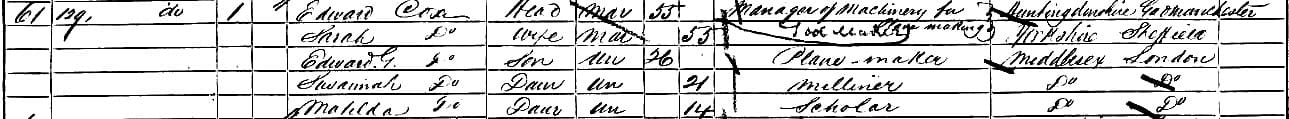 61 29, do 1 Edward Cox Head Mar 55 Manager of Machinery for Huntingdonshire Godmanchester
Sarah Do Wife Mar 55 Tool Maker (Plane making) Yorkshire Sheffield
Edward G. Do Son Un 26 Plane-maker Middlesex London
Susannah Do Daur Un 21 Milliner Do Do
Matilda Do Daur Un 14 Scholar Do Do